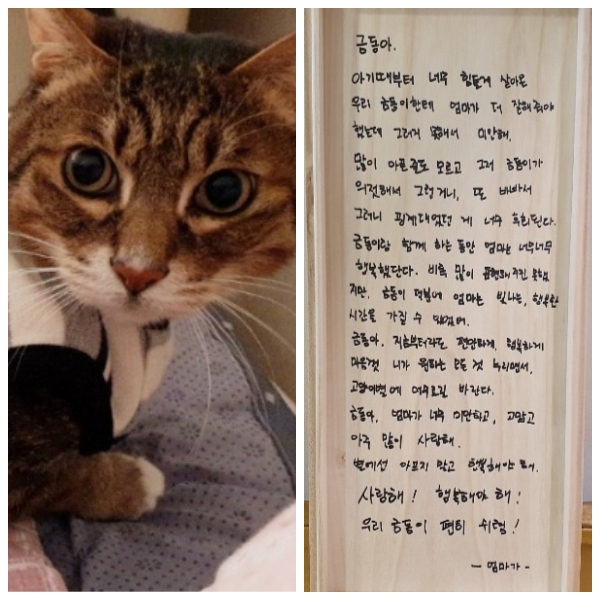 금동아.
아기때부터 너무 힘들게 살아온
우리 금동이한테 엄마가 더 잘해줘야
했는데 그러지 못해서 미안해.
많이 아픈줄도 모르고 그저 금동이가
의젓해서 그런거니, 또 바빠서
그러니 핑계대었던 게 너무 후회된다.
금동이랑 함께 하는 동안 엄마는 너무너무
행복했단다. 비록 많이 표현해주진 못했
지만, 금동이 덕분에 엄마는 빛나는, 행복한
시간을 가질 수 있었어.
금동아, 지금부터라도 편안하게, 행복하게
마음껏 니가 원하는 모든 것 누리면서,
고양이별에 머무르길 바란다.
금동아, 엄마가 너무 미안하고, 고맙고
아주 많이 사랑해.
별에선 아프지 말고 행복해야 해.
사랑해! 행복해야 해!
우리 금동이 편히 쉬렴!
- 엄마가 -